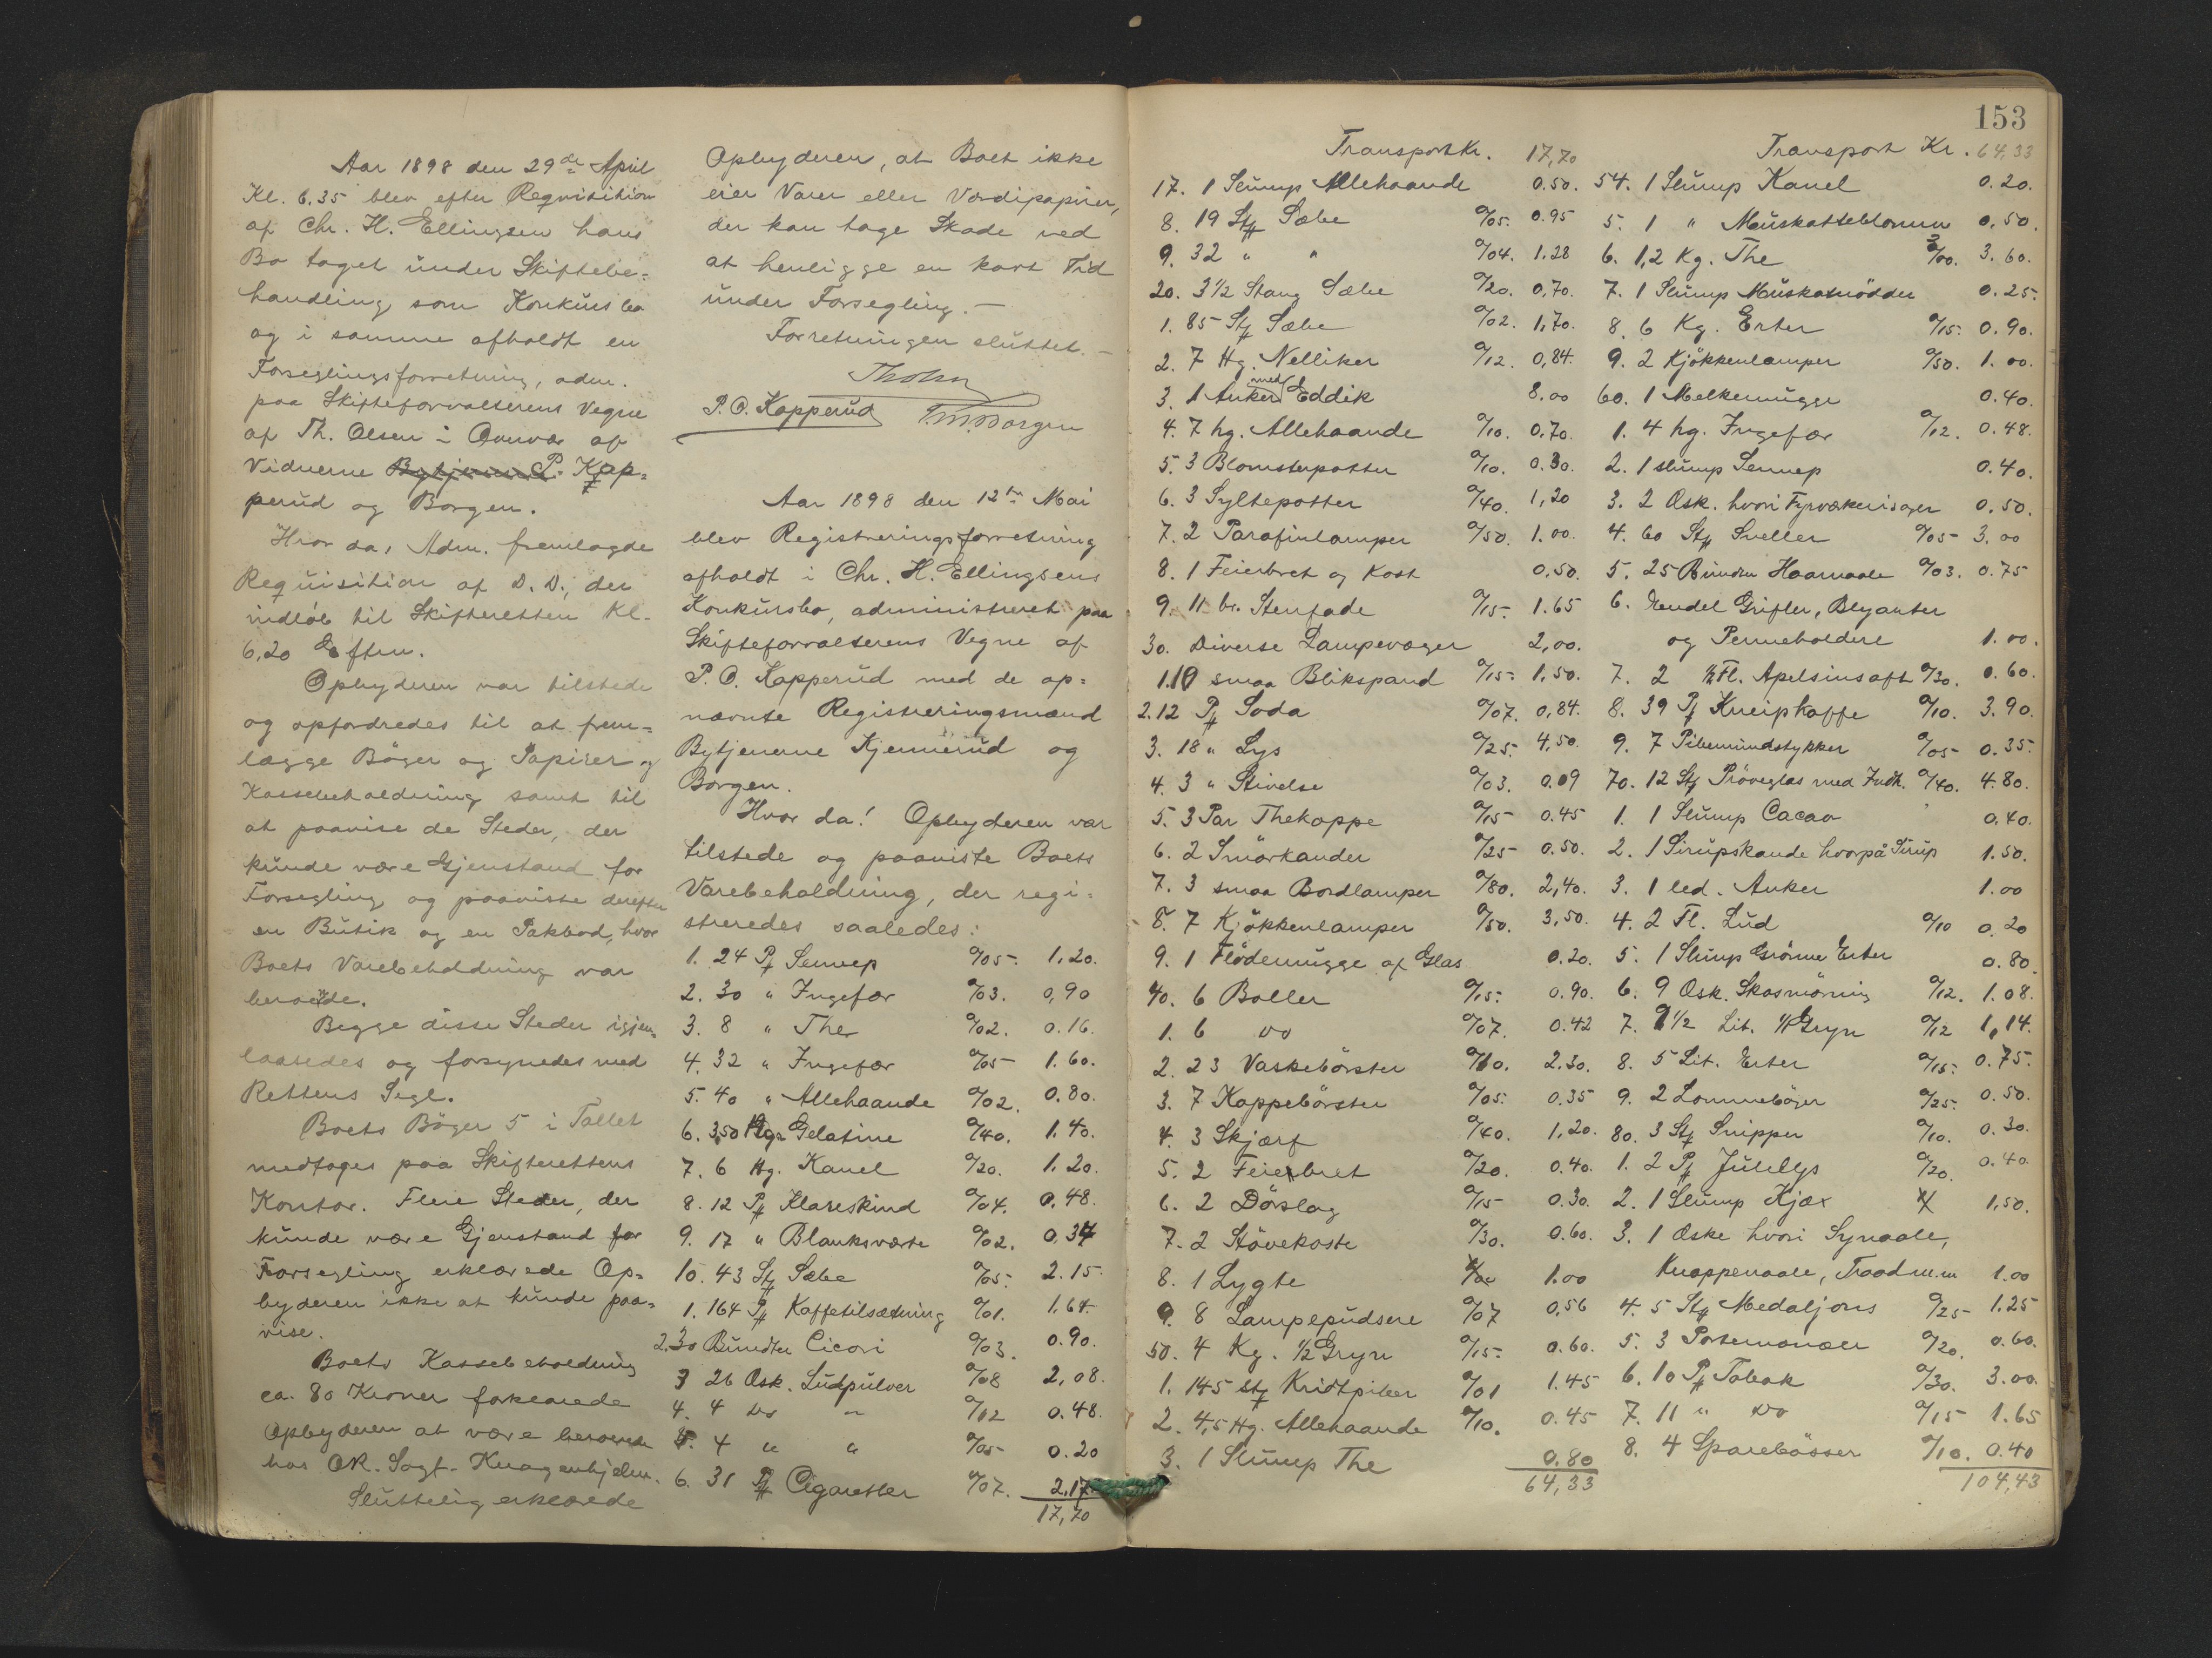 Aar 1898 den 29de April
Kl. 6,35 blev efter Reqvisition
af Chr. H. Ellingsen hans
Bo taget under Skiftebe=
handling som Konkursbo
og i samme afholdt en
Forseglingsforretning, adm.
paa Skifteforvalterens Vegne
af Th. Olsen i Overvær af
Vidnerne Bytjenerne P. Kap=
perud og Borgen.
Hvor da, Adm. fremlagde
Requisition af D. D., der
indløb til Skifteretten Kl.
6,20 Eftm.
Opbyderen var tilstede
og opfordredes til at frem=
lægge Bøger og Papirer og
Kassebeholdning samt til
at paavise de Steder, der
kunde være Gjenstand for
Forsegling og paaviste derefter
en Butik og en Pakbod, hvor
Boets Varebeholdning var
beroende.
Begge disse Steder igjen=
laasedes og forsynedes med
Rettens Segl.
Boets Bøger 5 i Tallet
medtoges paa Skifterettens
Kontor. Flere Steder, der
kunde være Gjenstand for
Forsegling erklærede Op=
byderen ikke at kunde paa=
vise.
Boets Kassebeholdning
ca. 80 Kroner forklarede
Opbyderen at være beroende
hos OR. Sagf. Knagenhjelm.
Sluttelig erklærede
Opbyderen, at Boet ikke
eier Varer eller Værdipapirer,
der kan tage Skade ved
at henligge en kort Tid
under Forsegling. —
Forretningen sluttet. —
Th Olsen
P. O. Kapperud Borgen
Aar 1898 den 12te Mai
blev Registreringsforretning
afholdt i Chr. H. Ellingsens
Konkursbo, administreret paa
Skifteforvalterens Vegne af
P. O. Kapperud med de op=
nævnte Registreringsmænd
Bytjenerne Kjennerud og
Borgen.
Hvor da! Opbyderen var
tilstede og paaviste Boets
Varebeholdning, der regi=
streredes saaledes:
1. 24 Pk Sennep à/05. 1,20.
2. 30 " Ingefær à/03. 0,90
3. 8 " The à/02. 0.16.
4. 32 " Ingefær à/05 1.60.
5. 40 " Allehaande à/02. 0.80.
6. 3,50 Hg. Gelatine à/40. 1.40.
7. 6 Hg. Kanel à/20. 1.20.
8. 12 Pk Klareskind à/04. 0.48.
9. 17 " Blanksværte à/02. 0,34
10. 43 Stk Sæbe à/05. 2.15
1. 164 Pk Kaffetilsætning à/01. 1.64.
2. 30 Bundter Cicori à/03. 0.90.
3 26 Æsk. Ludpulver à/08 2,08.
4. 4 Do " à/12 0.48.
5. 4 " " à/05 0.20
6. 31 Pk Cigaretter à/07. 2.17
17,70
153
Transport Kr. 17,70
17. 1 Slump Allehaande 0.50.
8. 19 Stk Sæbe à/05. 0.95
9. 32 " " à/04. 1,28
20. 3 1/2 Stang Sæbe à/20. 0,70.
1. 85 Stk Sæbe à/02. 1,70.
2. 7 Hg. Nelliker à/12. 0,84.
3. 1 Anker med Eddik 8.00
4. 7 hg. Allehaande à/10. 0,70.
5. 3 Blomsterpotter à/10. 0.30.
6. 3 Syltepotter à/40. 1,20
7. 2 Parafinlamper à/50. 1.00.
8. 1 Feiebret og Kost 0,50.
9. 11 br. Stenfade à/15. 1.65
30. Diverse Lampevæger 2,00.
1. 10 smaa Blikspand à/15. 1,50.
2. 12 Pk Soda à/07. 0,84.
3. 18 " Lys à/25. 4,50.
4. 3 " Stivelse à/03. 0.09
5. 3 Par Thekoppe à/15 0.45
6. 2 Smørkander à/25 0.50.
7. 3 smaa Bordlamper à/80. 2,40.
8. 7 Kjøkkenlamper à/50. 3,50.
9. 1 Flødemugge af Glas 0.20.
40. 6 Boller à/15. 0.90.
1. 6 Do à/07. 0.42
2. 23 Vaskebørster à/10. 2.30.
3. 7 Koppebørster à/05. 0.35
4. 3 Skjærf à/40. 1,20.
5. 2 Feiebret à/20. 0.40.
6. 2 Dørslag à/15 0.30.
7. 2 Støvekoste à/30. 0.60.
8. 1 Lygte 1.00
9. 8 Lampepudsere à/07 0,56
50. 4 Kg. 1/2 Gryn à/15. 0.60.
1. 145 Stk Kridtpiber à/01 1.45
2. 4,5 Hg. Allehaande à/10. 0.45
3. 1 Slump The 0.80
64,33
Transport Kr. 64,33
54. 1 Slump Kanel 0.20.
5. 1 " Muskatteblomm 0,50.
6. 1,2 Kg. The 3/00. 3.60.
7. 1 Slump Muskatnødder 0.25.
8. 6 Kg. Erter à/15. 0.90.
9. 2 Kjøkkenlamper à/50. 1.00.
60. 1 Melkemugge 0.40.
1. 4 hg. Ingefær à/12. 0.48.
2. 1 slump Sennep 0.40.
3. 2 Æsk. hvori Fyrværkerisager 0.50.
4. 60 Stk Sveller à/05 3.00
5. 25 Bundter Haarnaale à/03. 0.75
6. Endel Grifler, Blyanter
og Penneholdere 1.00.
7. 2 1/2 Fl. Apelsinsaft à/30. 0.60.
8. 39 Pk Kneiphaffe à/10. 3.90.
9. 7 Pibemundstykker à/05 0.35.
70. 12 Stk Prøveglas med Indh. à/40. 4.80.
1. 1 Slump Cacao 0.40.
2. 1 Sirupskande hvorpå Sirup 1.50.
3. 1 led. Anker 1.00
4. 2 Fl. Lud à/10 0.20
5. 1 Slump Grønne Erter 0.80.
6. 9 Æsk. Skosmørning à/12. 1.08.
7. 9 1/2 Lit. 1/1 Gryn à/12 1,14.
8. 5 Lit. Erter à/15. 0.75.
9. 2 Lommebøger à/25. 0.50.
80. 3 Stk Snipper à/10. 0.30.
1. 2 Pk Julelys à/20. 0.40.
2. 1 Slump Kjæx 1,50.
3. 1 Æske hvori Synaale,
Knappenaale, Traad m.m 1.00
4. 5 Stk Medaljons à/25 1.25
5. 3 Portemonæer à/20. 0.60.
6. 10 Pk Tobak à/30. 3.00.
7. 11 " Do à/15 1.65
8. 4 Sparebøsser à/10. 0.40
104,43